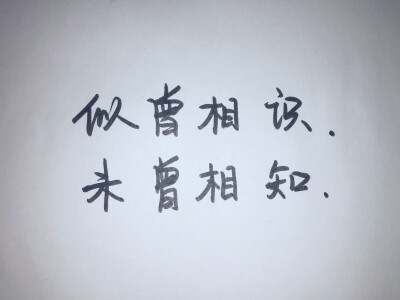 似曾相识.
未曾相知.